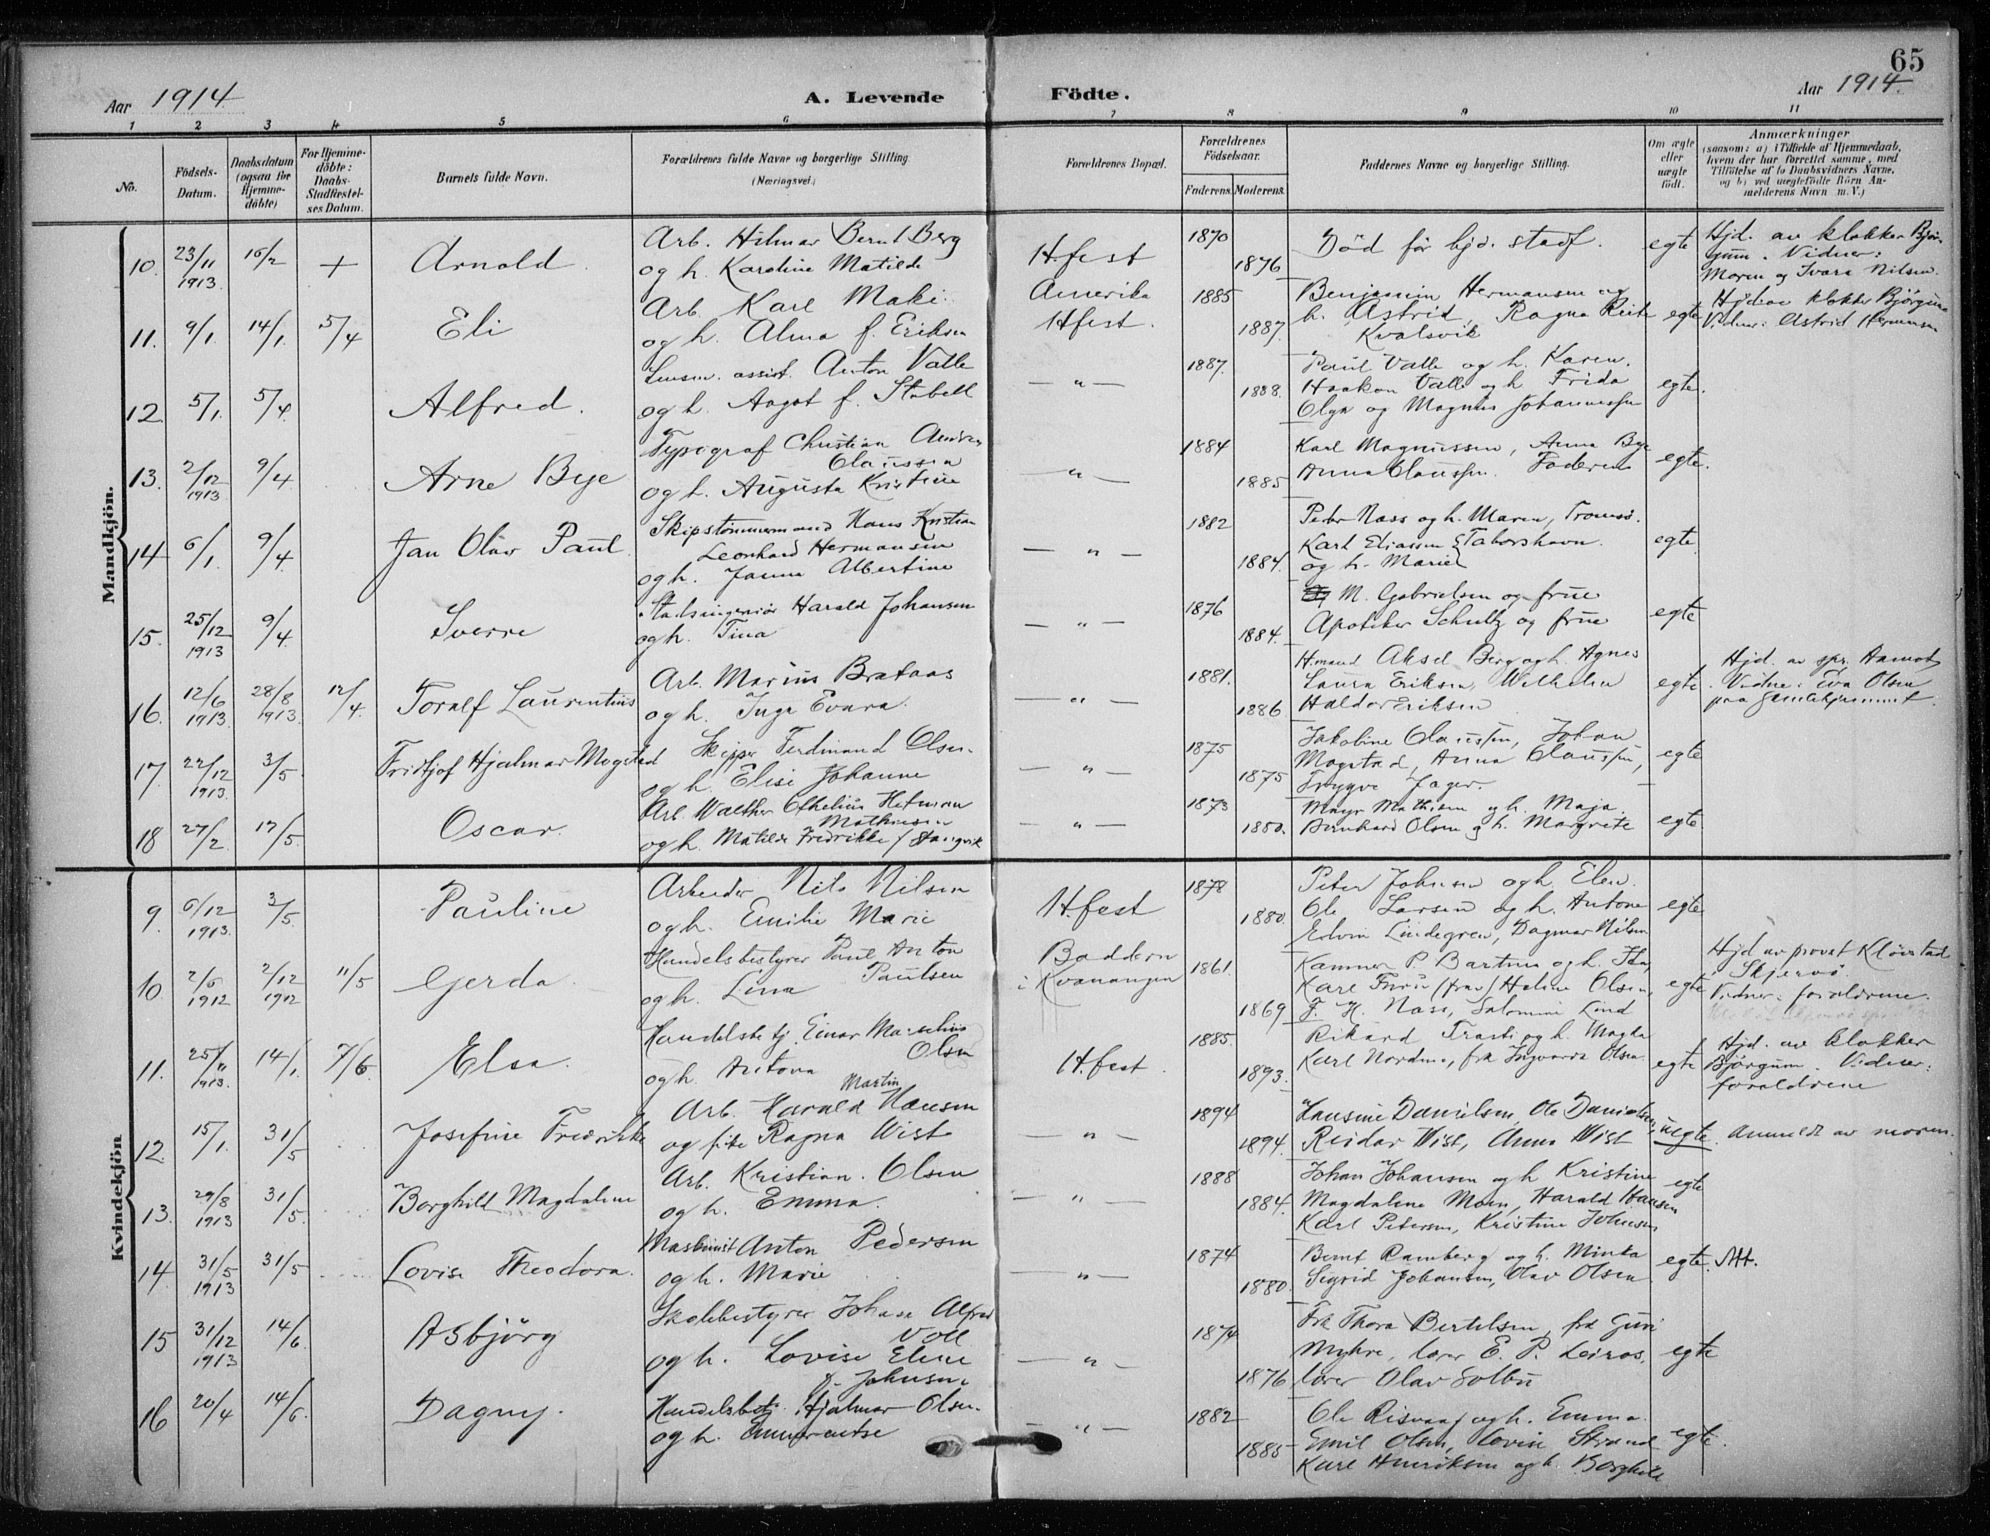 65
Aar 1914
A. Levende Födte.
Aar 1914.
1 2 3 4 5 6 7 8 9 10 11
No.
Födsels-Datum.
Daabsdatum (ogsaa for Hjemmedöbte)
For Hjemmedöbte: Daabs-Stadfæstelses Datum.
Barnets fulde Navn.
Forældrenes fulde Navne og borgerlige Stilling.
(Næringsvei.)
Forældrenes Bopæl.
Forældrenes Födselsaar.
Faderens. Moderens.
Faddernes Navne og borgerlige Stilling.
Om ægte eller uægte födt.
Anmærkninger
(saasom: a) i Tilfælde af Hjemmedaab, hvem der har forrettet samme, med Tilföielse af to Daabsvidners Navne, og b) ved uægtefödte Börn Anmelderens Navn m. V.)
Mandkjön.
10. 23/11 1913. 15/2 + Arnold.
Arb. Hilmar Bernt Berg
og h. Karoline Matilde
H.fest 1870 1876
Död för bjd. stadf. egte
Hjd. av klokker Bjørgum. Vidner:
Moren og Ivara Nilsen.
11. 9/1. 14/1. 5/4 Eli
Arb. Karl Maki
og h. Alma f. Eriksen
Amerika
Hfest. 1885 1887.
Benjamin Hermansen og
h. Astrid, Ragna Reite
Kvalsvik egte
klokker Bjørgum
Vidner: Astrid Hermansen
12 5/1. 5/4 Alfred.
assist. Anton Valle
og h. Aagot f. Stabell
— " — 1887. 1888.
Paul Valle og h. Karen.
Haakon Valle og h. Frida
Olga og Magnus Johannessen egte.
13. 2/12 1913 9/4 Arne Bye
Typograf Christian
Claussen
og h. Augusta Kristine
— " — 1884 1885
Karl Magnussen, Anna Bye
Anna Claussen. Faderen egte.
14 6/1. 9/4. Jan Olav Paul.
Skipstømmermand Hans Kristian
Leonhard Hermansen
og h. Janna Albertine
— " — 1882 1884.
Peder Næss og h. Maren, Tromsö.
Karl Eliassen
og h. Marie egte
15. 25/12 1913 9/4 Sverre
Stadsingeniör Harald Johansen
og h. Tina
— " — 1876 1884.
M. Gabrielsen og frue
Apoteker Schultz og frue egte
16. 12/6 1913. 28/8 1913. 12/4. Toralf Laurentius
Arb. Marius Brataas
og h. Inga Evara.
— " — 1881. 1886
Aksel Berg og h. Agnes
Laura Eriksen, Wilhelm
Haldor Eriksen egte.
Hjd. av spr. Aamot
Vidne: Eva Olsen
paa Gamlehjemmet.
17. 22/12 1913. 3/5. Fridtjof Hjalmar Mogstad
Skipper Ferdinand Olsen.
og h. Elise Johanne
— " — 1875 1875
Jakobine Claussen, Johan
Mogstad, Anna Claussen,
Trygve Jager. egte
18 27/2. 17/5. Oscar.
Arb. Walther Hetman
Mathisen
og h. Matilde Fredrikke f Stangvik
— " — 1873 1880.
Mathisen og h. Maja.
Bernhard Olsen og h. Margrete egte
Kvindekjön
9. 6/12 1913. 3/5. Pauline
Arbeider Nils Nilsen
og h. Emilie Marie
H.fest 1878 1880.
Peter Johnsen og h. Elen.
Ole Larsen og h. Antone
Edvin Lindegren, Dagmar Nilsen egte
10. 2/5 1912 2/12 1912 11/5 Gerda.
Handelsbestyrer Paul Anton
Paulsen
og h. Lina
Baddern
i Kvænangen 1861. 1869
P. Bartnes og h. Ida,
Karl Olsen,
F. H. Næss, Salomine Lind egte
Hjd av provst Kløvstad
Skjervö.
Vidner: forældrene.
11. 25/11 1913. 14/1. 7/6. Elsa.
Handelsbetj. Einar Marselius
Olsen
og h. Antona
H.fest. 1885. 1893.
Rikard Trasti og h. Magda
Karl Nordmo, frk Ingvarda Olsen. egte
Hjd. av klokker
Bjørgum. Vidner:
forældrene
12. 15/1. 31/5 Josefine Fredrikke
Arb. Harald Martin Hansen
og pike Ragna Wist
— " — 1894 1894.
Hansine Danielsen, Ole Danielsen,
Reidar Wist, Anna Wist uegte.
Anmeldt av moren.
13. 29/8 1913 31/5. Borghild Magdalene
Arb. Kristian Olsen
og h. Emma.
— " — 1888 1884.
Johan Johansen og h Kristine
Magdalene Moen, Harald Hansen
Karl Petersen, Kristine Johnsen egte
14. 31/5 1913 31/5 Lovise Theodora.
Maskinist Anton Pedersen
og h. Marie
— " — 1874 1880.
Bernt Ramberg og h. Minka
Sigrid Johansen, Olav Olsen egte.
15 31/12 1913 14/6. Asbjörg
Skolebestyrer Johan Alfred
Voll
og h. Lovise Eline
f. Johnsen.
— " — 1874 1876
Frk Thora Bertelsen, frk Guri
Myhre, lærer E. P. Leiros,
lærer Olav Solbu egte
16 20/4 14/6. Dagny.
Handelsbetj. Hjalmar Olsen.
og h. Annarentse
— " — 1882 1885
Ole Risvaag og h. Emma
Emil Olsen, Lovise Strand
Karl Henriksen og h. Borghild egte.